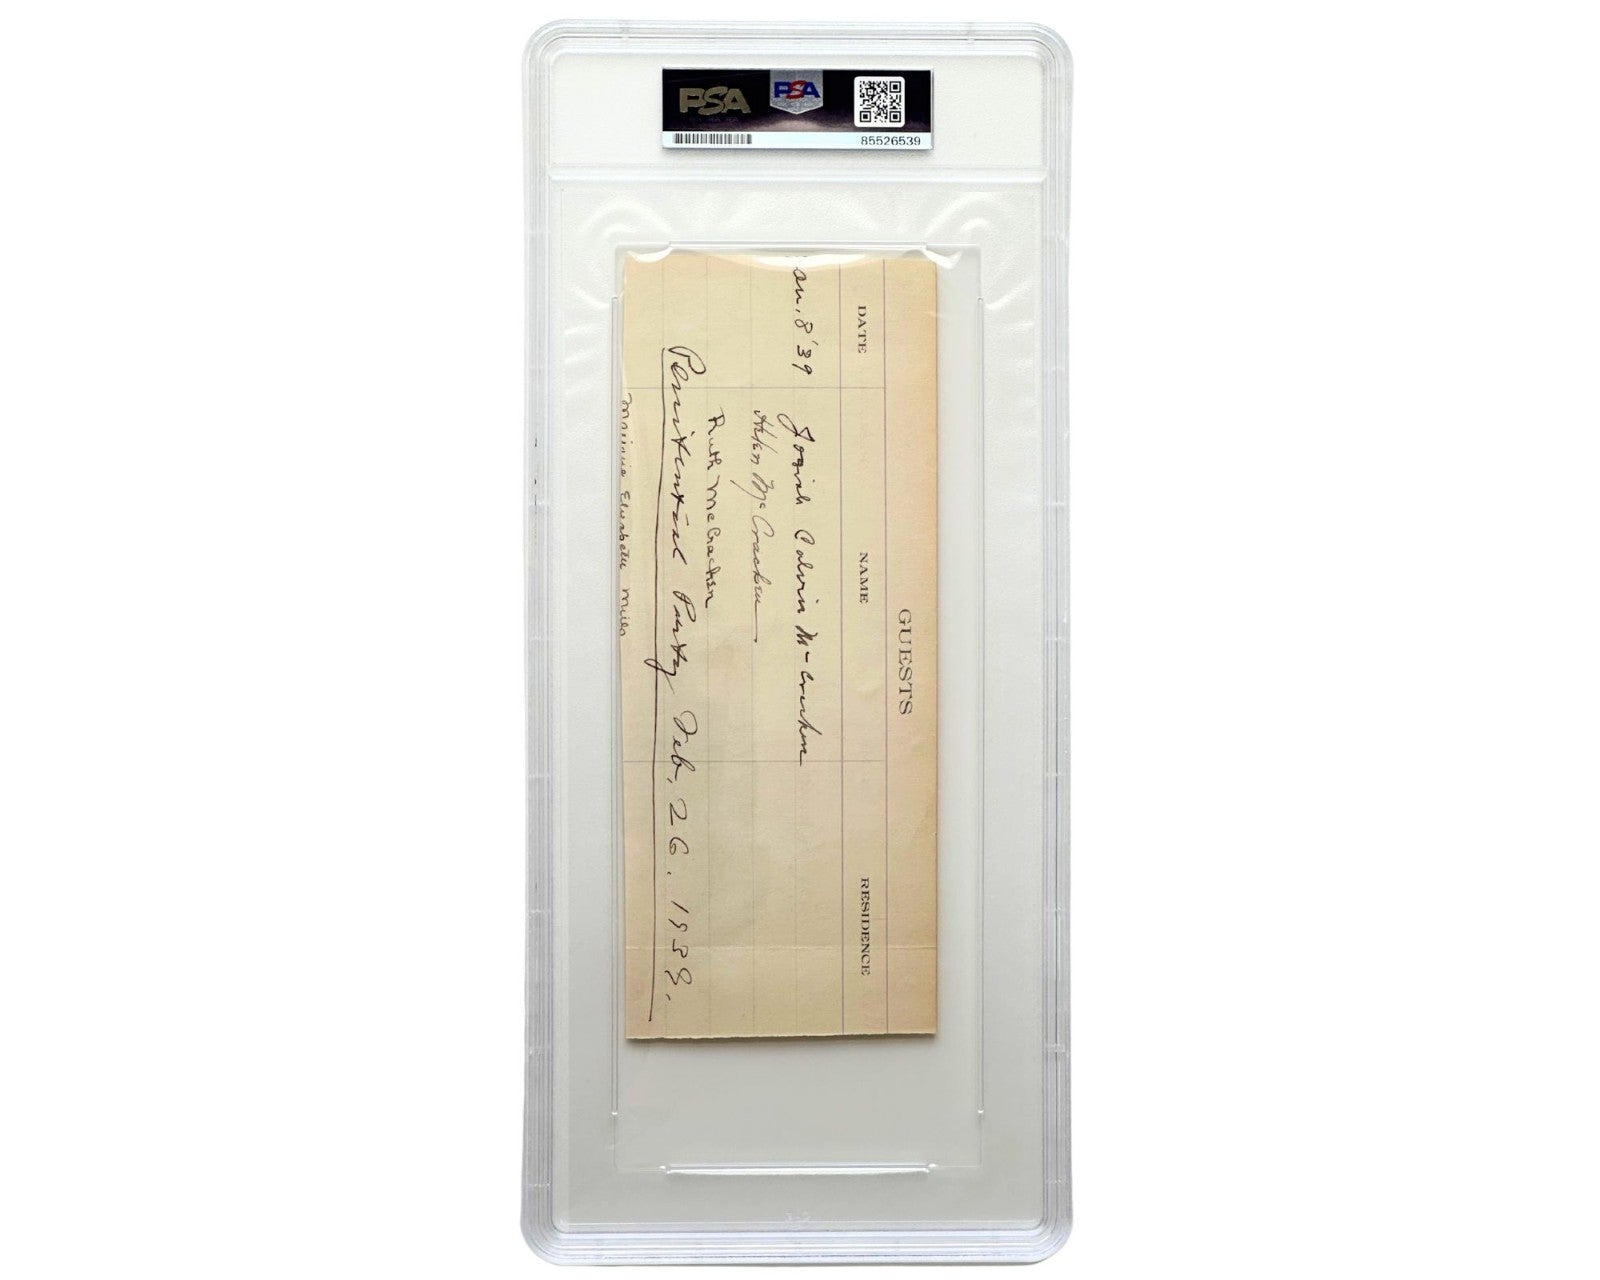 PSA
PSA
85526539
GUESTS
DATE NAME RESIDENCE
an. 8 '39 Josiah Calvin McCracken
Helen McCracken
Ruth McCracken
Penitential Party Feb, 26. 1939.
Marjorie Elizabeth Mills